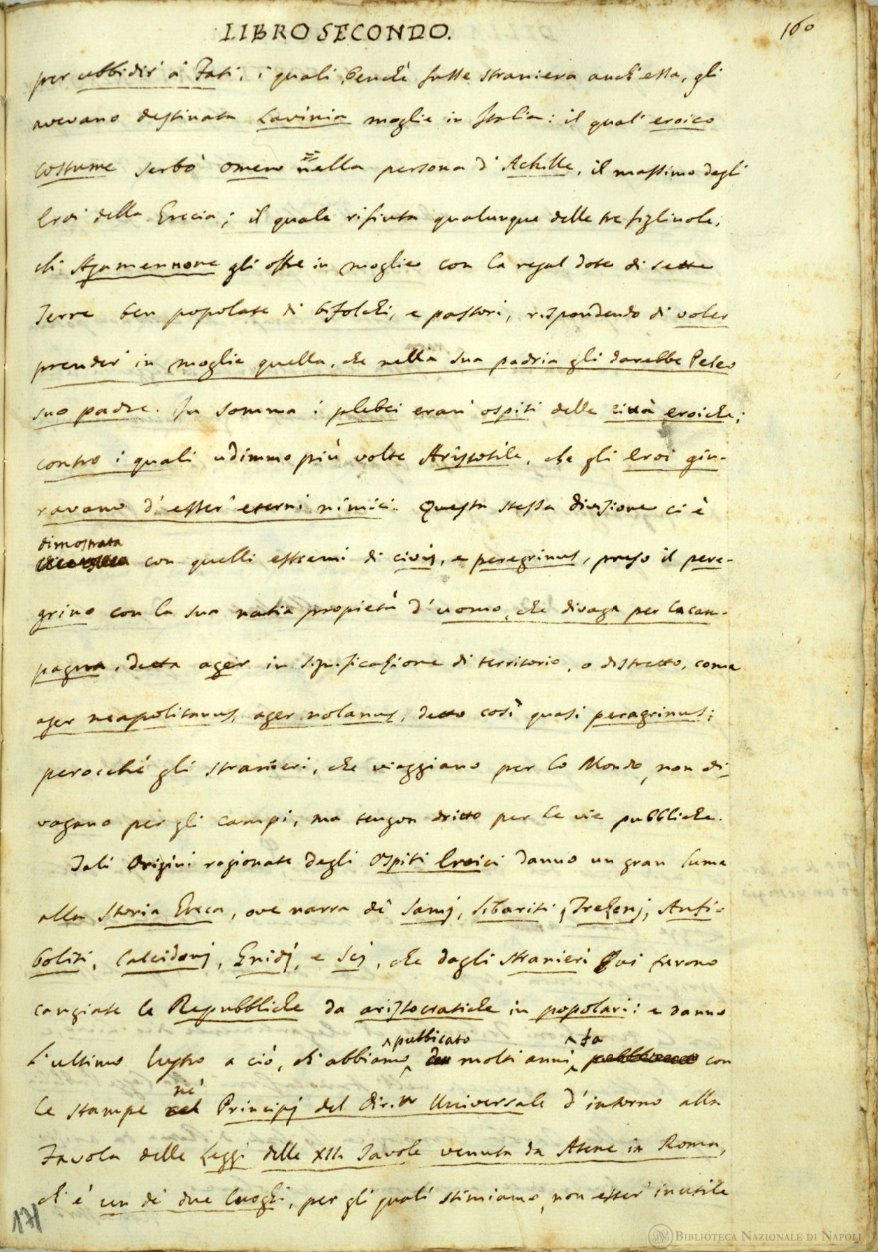 LIBRO SECONDO.
160
per ubbidir' a' Fati; i quali, benchè fusse straniera anch'essa, gli
avevano destinata Lavinia moglie in Italia: il qual' eroico
costume serbò Omero nella persona d'Achille, il massimo degli
Eroi della Grecia; il quale rifiuta qualunque delle tre figliuole,
ch' Agamennone gli offre in moglie con la regal dote di sette
Terre ben popolate di bifolchi, e pastori, rispondendo di voler
prender' in moglie quella, che nella sua padria gli darebbe Peleo
suo padre. In somma i plebei eran' ospiti delle città eroiche;
contro i quali udimmo più volte Aristotile, che gli Eroi giu-
ravano d'esser' eterni nimici. Questa stessa divisione ci è
dimostrata
con quelli estremi di civis, e peregrinus, preso il pere-
grino con la sua natia propietà d'uomo, che divaga per la cam-
pagna, detta ager in significazione di territorio, o distretto, come
ager neapolitanus, ager nolanus, detto così quasi peragrinus;
perocchè gli stranieri, che viaggiano per lo Mondo, non di-
vagano per gli campi, ma tengon dritto per le vie pubbliche.
Tali Origini ragionate degli Ospiti Eroici danno un gran lume
alla Storia Greca, ove narra de' Samj, Sibariti, Trezenj, Anfi-
boliti, Calcidonj, Gnidj, e Scj, che dagli stranieri vi furono
cangiate le Repubbliche da aristocratiche in popolari: e danno
l'ultimo lustro a ciò, ch' abbiamo pubblicato molti anni fa con
le stampe ne' Principj del Diritto Universale d'intorno alla
Favola delle Leggi delle XII. Tavole venuta da Atene in Roma,
ch' è un de' due luoghi, per gli quali stimiamo, non esser' inutile
171
BIBLIOTECA NAZIONALE DI NAPOLI